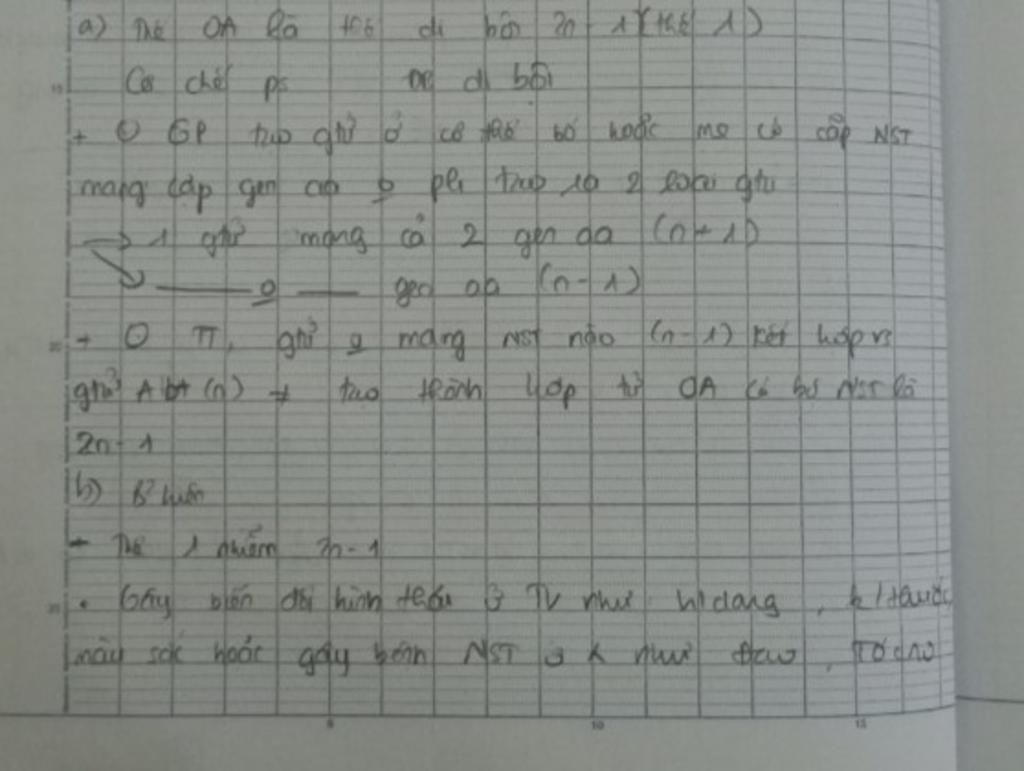 a) Thể OA là thể dị bội 2n-1 (thể 1)
Cơ chế ps dị bội
+ GP tạo gtử ở cơ thể bố hoặc mẹ có cặp NST
mang cặp gen ko pli tạo ra 2 loại gtử
→ 1 gtử mang cả 2 gen (n+1)
→ ——— o ——— gen (n-1)
+ O TT, gtử o mang NST nào (n-1) kết hợp vs
gtử A bt (n) → tạo thành hợp tử OA có bộ NST là
2n-1
b)
- Thể 1 nhiễm 2n-1
. Gây biến đổi hình thái ở TV như h/dạng, k/thước
màu sắc hoặc gây bệnh NST như Đao, Tớcnơ